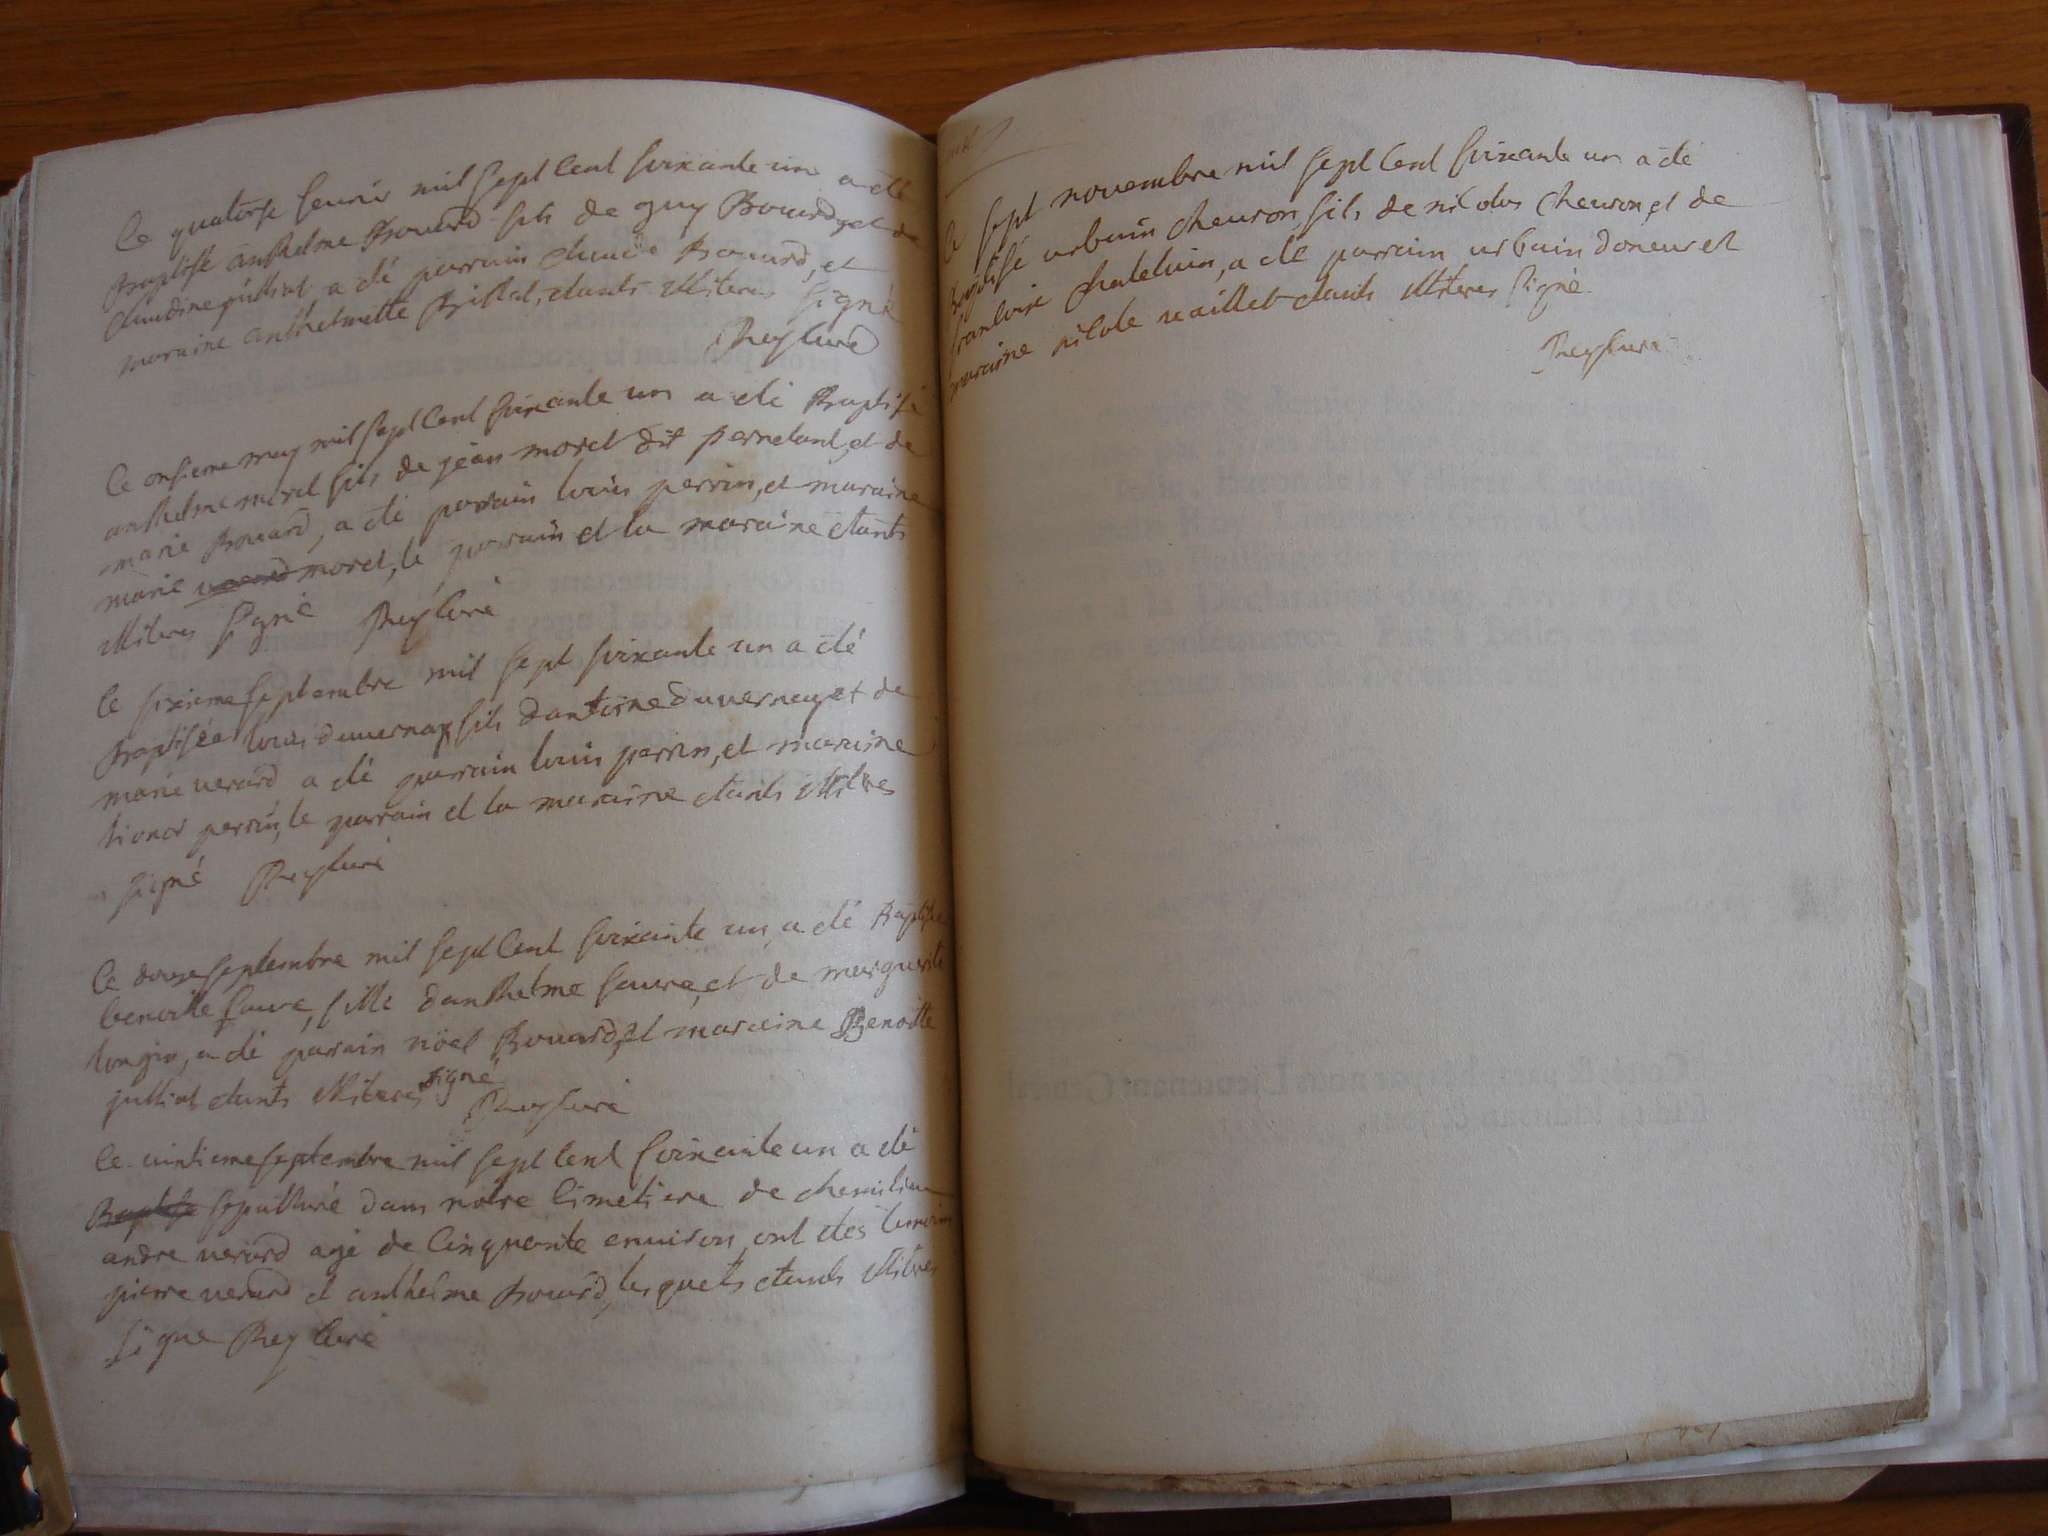 Ce quatorse feurié mil sept cent soixante un a été
Baptisé anthelme Bouard fils de guy Bouard, et de
claudine juillint, a été parrain claude Bouard, et
maraine anthelmette étants illiteres signé
Rey curé
Ce onsieme may mil sept cent soixante un a été Baptisé
anthelme morel fils de jean morel dit pernetant, et de
marie Bouard, a été parrain louis perrin, et maraine
marie morel, le parrain et la maraine étants
illiteres signé Rey curé
le sixieme septembre mil sept soixante un a été
Baptisée louis duuernay fils dantoine duuernay et de
marie uerard a été parrain louis perrin, et maraine
perrin, le parrain et la maraine étants illitres
signé Rey curé
Ce douze septembre mil sept cent soixante un, a été Baptisée
benoitte faure, fille danthelme faure, et de marguerite
longin, a été parain nöel Bouard, et maraine Benoitte
étants illiteres signé Rey curé
Ce uintieme septembre mil sept cent soixante un a été
Baptisé sepulturé dans notre cimetiere de
andre uerard agé de cinquante enuiron, ont étés temoins
pierre uerard et anthelme Bouard, lesquels étants illitres
signe Rey curé
Ce sept nouembre mil sept cent soixante un a été
Baptisé urbain cheuron, fils de nicolas cheuron, et de
francoise chatelain, a été parrain urbain doneur et
maraine nicole uaillet étants illiteres signé
Rey curé